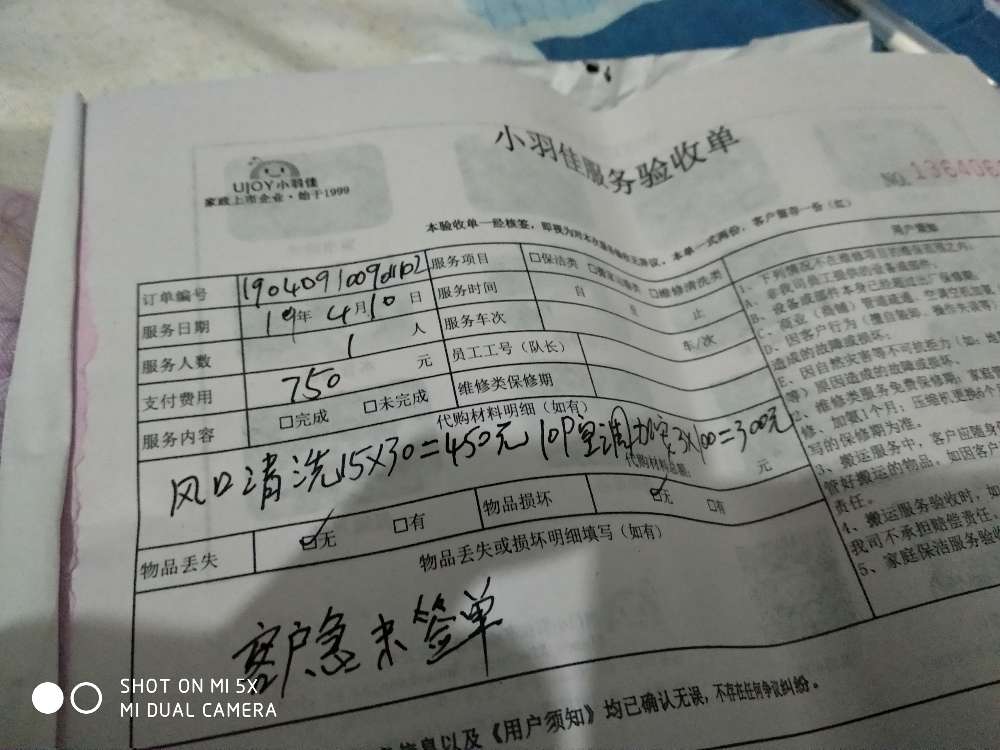 小羽佳服务验收单
UJOY小羽佳
家政上市企业·始于1999
No. 1364060
本验收单一经核签，即视为对本次服务
本单一式两份，客户留存一份（红）
订单编号
服务项目 □保洁类 □维修清洗类
服务日期 19年 4月10日 服务时间 自 至 止
服务人数 1 人 服务车次 车/次
支付费用 750 元 员工工号（队长）
服务内容 □完成 □未完成 维修类保修期
代购材料明细（如有）
风口清洗15X30=450元 10P空调加 3X100=300元
代购材料总额： 元
物品丢失 ☑无 □有 物品损坏 ☑无 □有
物品丢失或损坏明细填写（如有）
客户急未签单
信息以及《用户须知》均已确认无误，不存在任何争议纠纷。
用户须知
1、下列情况不在维修项目的维保范围之内：
A、非我司员工提供的设备或部件。
B、设备或部件本身已经超过出厂保修期。
C、商业（商铺）管道疏通、空调空机加氟
D、因客户行为（擅自装卸、操作失误等）
造成的故障或损坏；
E、因自然灾害等不可抗拒力（如：地
等）原因造成的故障或损坏。
2、维修类服务免费保修期：家庭
修、加氟1个月；压缩机更换6个
写的保修期为准。
3、搬运服务中，客户应随身
管好搬运的物品，如因客户
责任。
4、搬运服务验收时，如
我司不承担赔偿责任。
5、家庭保洁服务验收
SHOT ON MI 5X
MI DUAL CAMERA